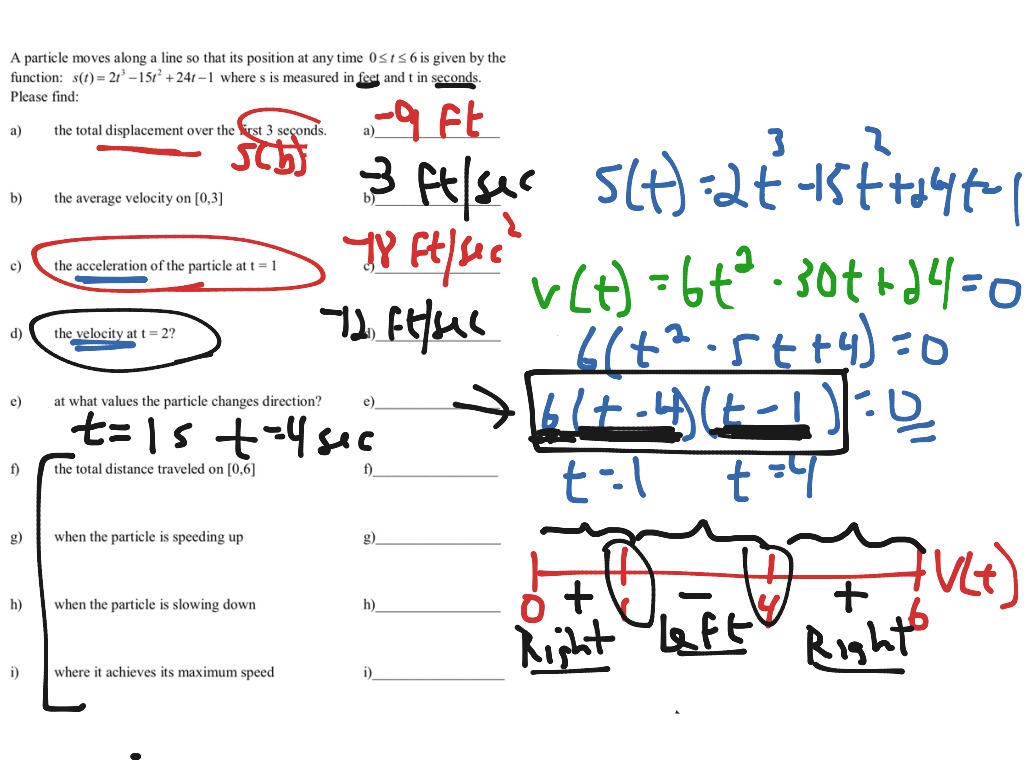 A particle moves along a line so that its position at any time 0 ≤ t ≤ 6 is given by the
function: s(t) = 2t³ −15t² + 24t −1 where s is measured in feet and t in seconds.
Please find:
a) the total displacement over the first 3 seconds. a) -9 Ft
s(b)
b) the average velocity on [0,3] b) -3 ft/sec
c) the acceleration of the particle at t = 1 c) -18 Ft/sec²
d) the velocity at t = 2? d) -12 ft/sec
e) at what values the particle changes direction? e)
t = 1 s t = 4 sec
f) the total distance traveled on [0,6] f)
g) when the particle is speeding up g)
h) when the particle is slowing down h)
i) where it achieves its maximum speed i)
s(t) = 2t³ - 15t² + 24t - 1
v(t) = 6t² - 30t + 24 = 0
6(t² - 5t + 4) = 0
6(t - 4)(t - 1) = 0
t = 1 t = 4
V(t)
0 + 1 − 4 + 6
Right Left Right